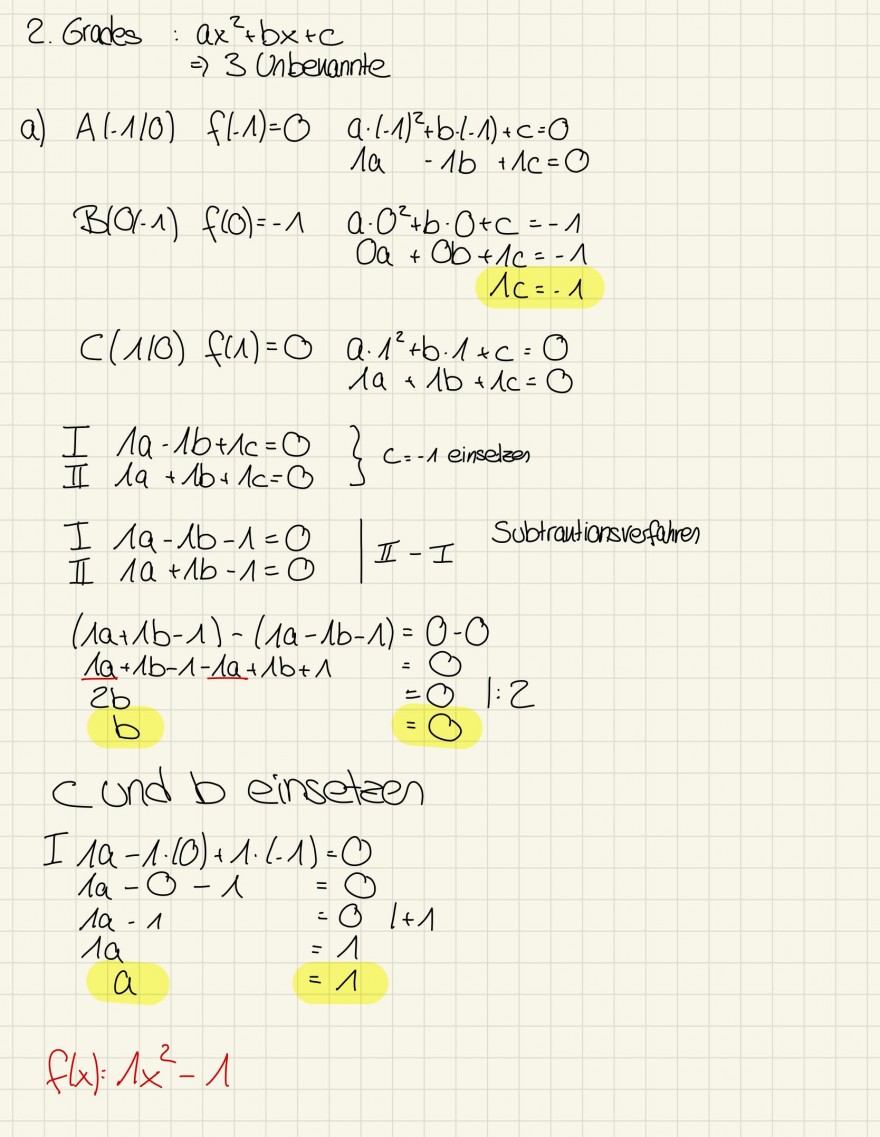 2. Grades : ax²+bx+c
⇒ 3 Unbenannte
a) A(-1/0) f(-1)=0 a·(-1)²+b·(-1)+c=0
1a -1b +1c=0
B(0/-1) f(0)=-1 a·0²+b·0+c=-1
0a + 0b +1c=-1
1c=-1
C(1/0) f(1)=0 a·1²+b·1+c=0
1a + 1b +1c=0
I 1a-1b+1c=0 } c=-1 einsetzen
II 1a +1b+1c=0
I 1a-1b-1=0 | II - I Subtrautionsverfahren
II 1a+1b-1=0
(1a+1b-1)-(1a-1b-1)=0-0
1a+1b-1-1a+1b+1 =0
2b =0 |:2
b =0
c und b einsetzen
I 1a-1·(0)+1·(-1)=0
1a-0-1 =0
1a-1 =0 |+1
1a =1
a =1
f(x)=1x²-1